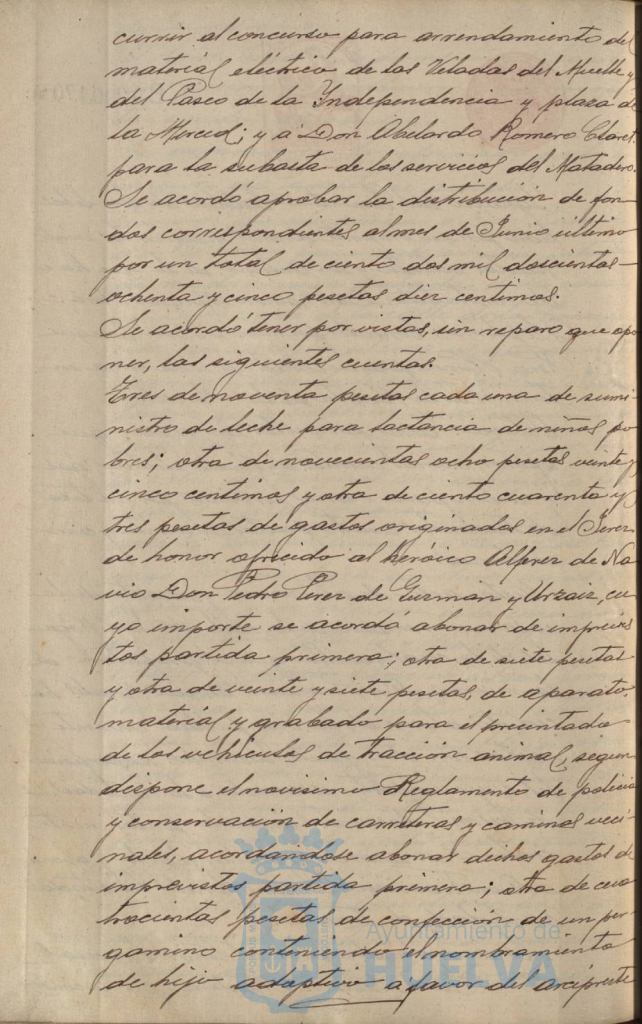 currir al concurso para arrendamiento del
material eléctrico de las Veladas del Muelle y
del Paseo de la Independencia y plaza de
la Merced; y á Don Abelardo Romero Claret
para la subasta de los servicios del Matadero.
Se acordó aprobar la distribución de fon-
dos correspondientes al mes de Junio último
por un total de ciento dos mil doscientas
ochenta y cinco pesetas diez centimos.
Se acordó tener por vistas, sin reparo que opo-
ner, las siguientes cuentas.
Tres de noventa pesetas cada una de sumi-
nistro de leche para lactancia de niños po-
bres; otra de novecientas ocho pesetas veinte y
cinco centimos y otra de ciento cuarenta y
tres pesetas de gastos originados en el Jerez
de honor ofrecido al heróico Alferez de Na-
vio Don Pedro Perez de Guzmán y Urzaiz, cu-
yo importe se acordó abonar de imprevis-
tos partida primera; otra de siete pesetas
y otra de veinte y siete pesetas, de aparato,
material y grabado para el precintado
de los vehiculos de tracción animal, segun
dispone el novisimo Reglamento de policia
y conservación de carreteras y caminos veci-
nales, acordandose abonar dichos gastos de
imprevistos partida primera; otra de cua-
trocientas pesetas de confección de un per-
gamino conteniendo el nombramiento
de hijo adoptivo a favor del arcipreste
Ayuntamiento de
HUELVA